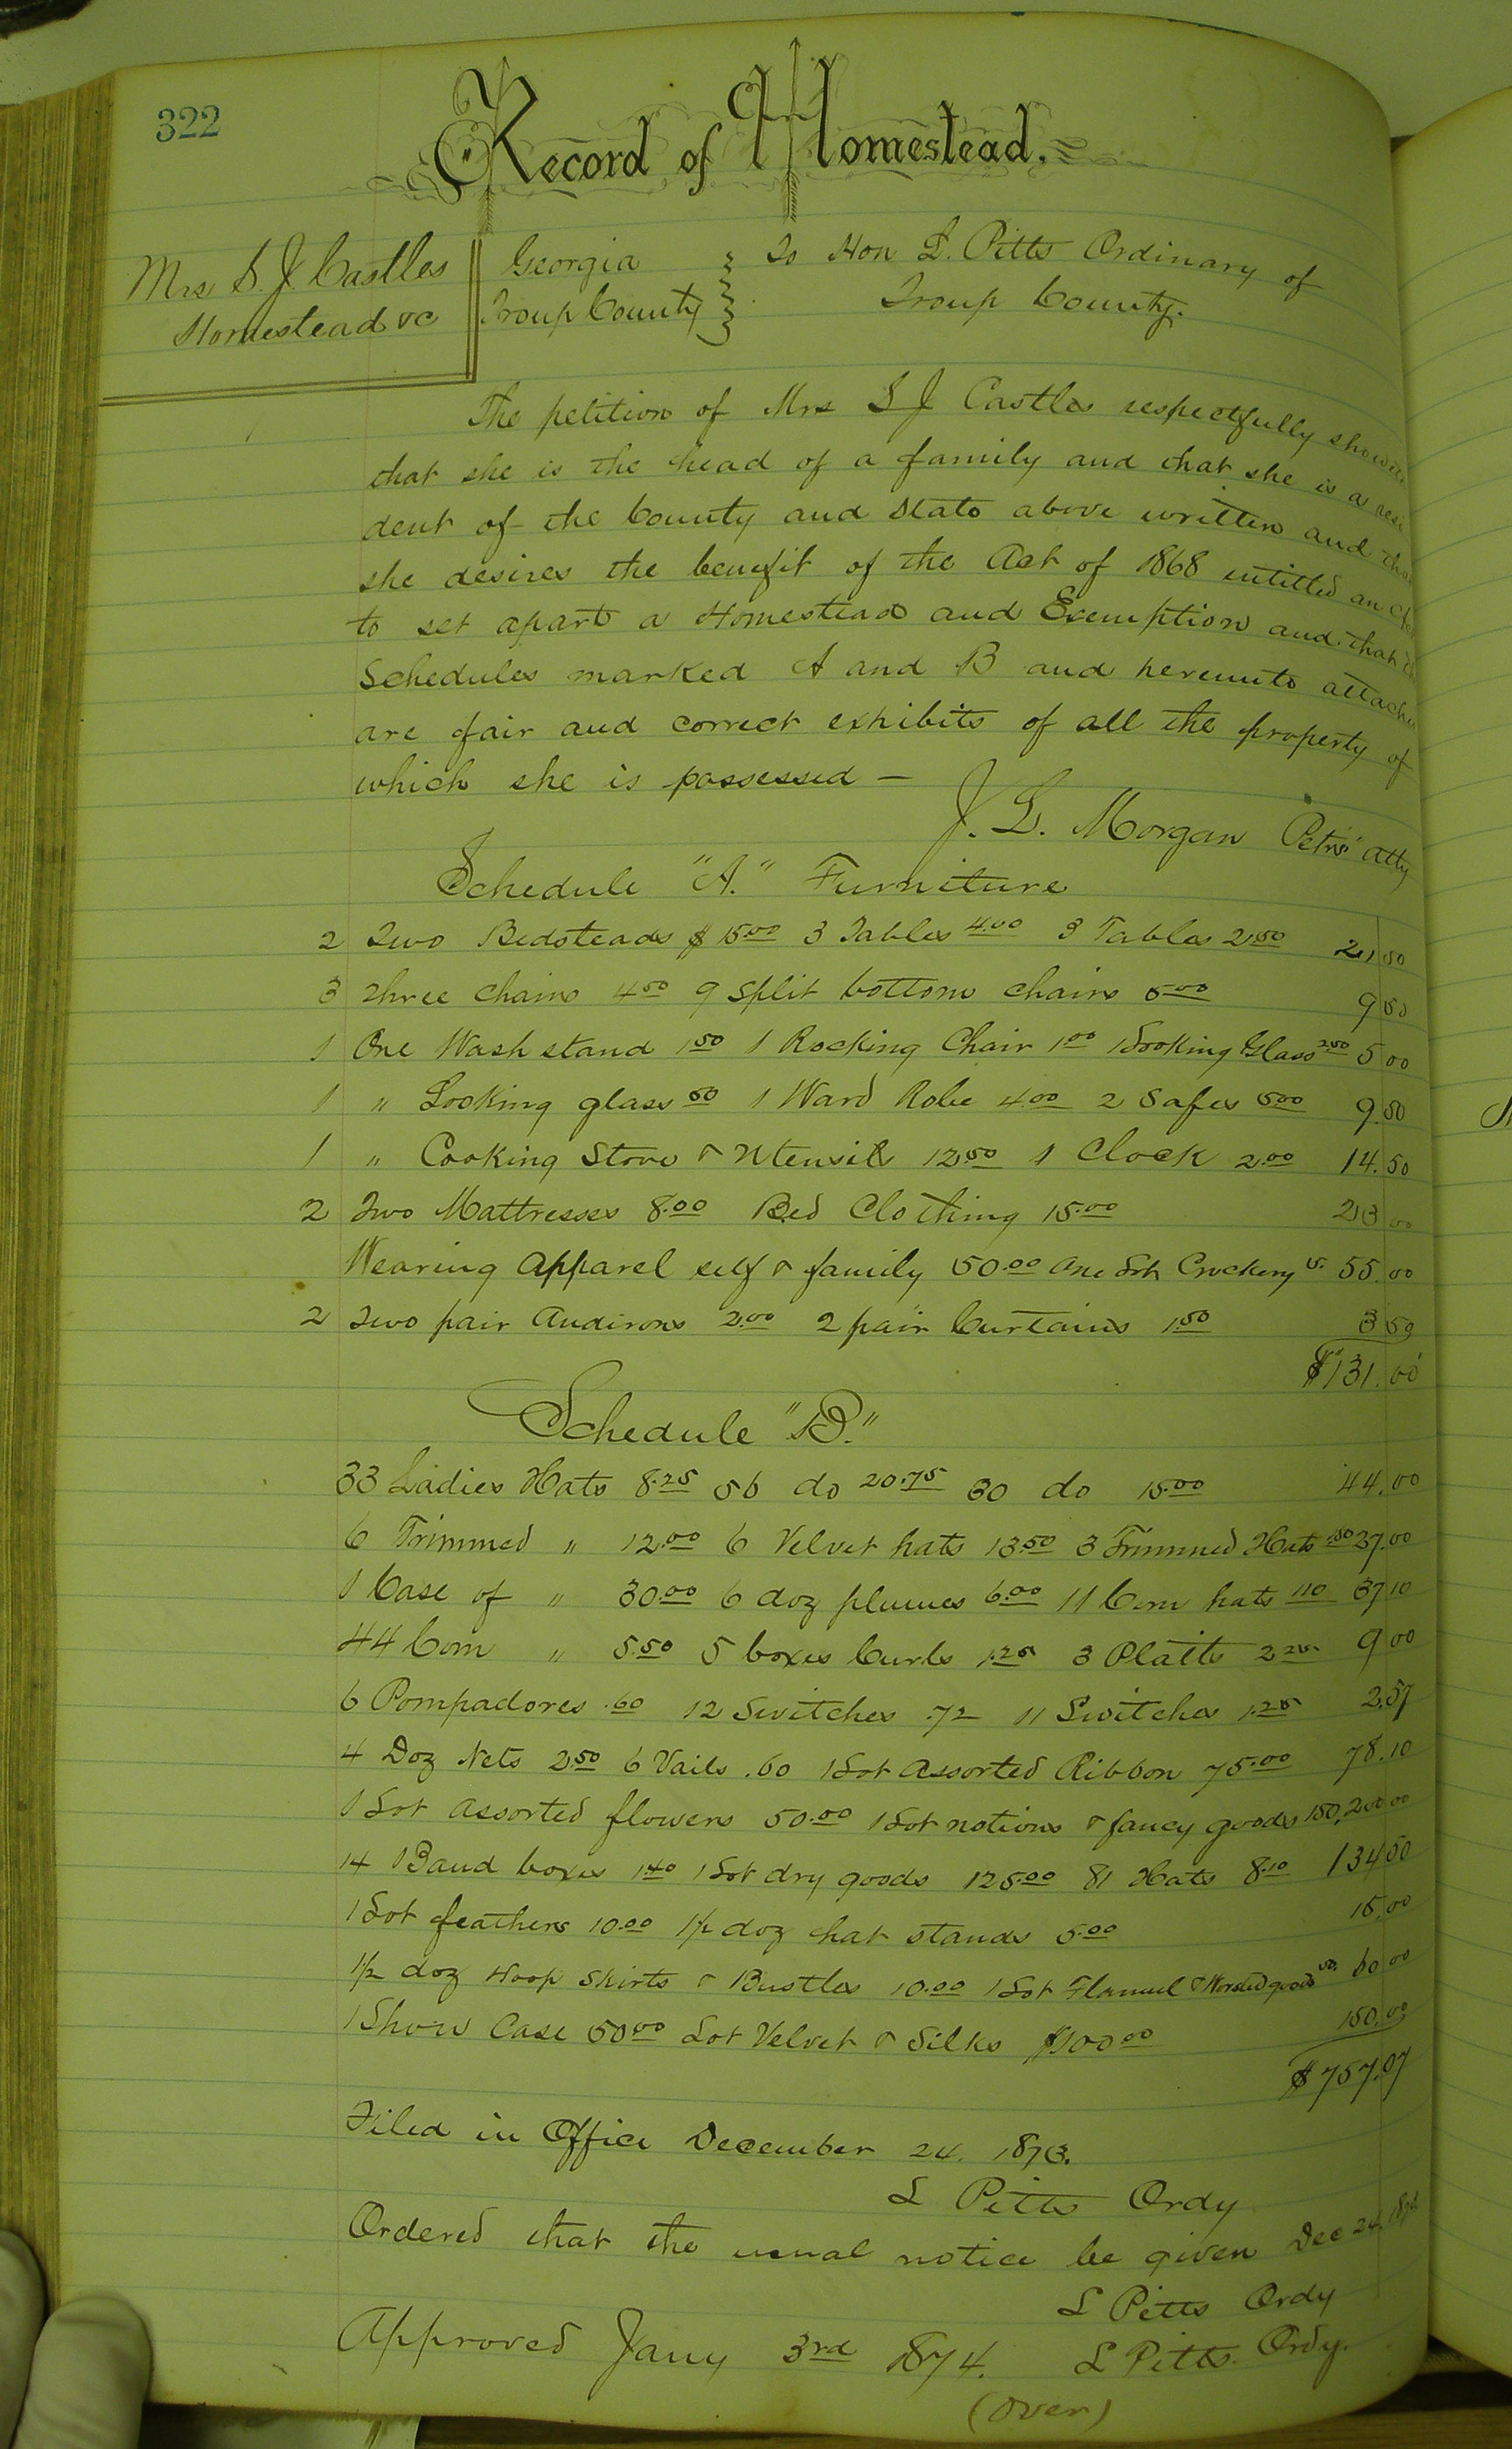 322
Record of Homestead.
Mrs S. J. Castles
Homestead &c
Georgia
Troup County
To Hon L. Pitts Ordinary of
Troup County.
The petition of Mrs S J Castles respectfully
that she is the head of a family and that she is a resi
dent of the County and State above written and that
she desires the benefit of the Act of 1868 entitled an
to set apart a Homestead and Exemption and that
Schedules marked A and B and hereunto attached
are fair and correct exhibits of all the property of
which she is possessed —
J. L. Morgan Petrs' Atty
Schedule "A." Furniture
2 Two Bedsteads $15.00 3 Tables 4.00 3 Tables 2.50 21.50
3 Three Chairs 4.50 9 Split bottom chairs 5.00 9.50
1 One Wash stand 1.50 1 Rocking Chair 1.00 1 Looking Glass 2.50 5 00
1 " Looking glass 50 1 Ward Robe 4.00 2 Safes 5.00 9.50
1 " Cooking Stove & Utensils 12.50 1 Clock 2.00 14.50
2 Two Mattresses 8.00 Bed Clothing 15.00 23 00
Wearing Apparel self & family 50.00 One Lot Crockery 5. 55.00
2 Two pair Andirons 2.00 2 pair Curtains 1.50 3 50
$131.00
Schedule "B."
33 Ladies Hats 8.25 56 do 20.75 30 do 15.00 44.00
6 Trimmed " 12.00 6 Velvet hats 13.50 3 Trimmed Hats 37.00
1 Case of " 30.00 6 doz plumes 6.00 11 Com hats 1 10 37 10
44 Com " 5.50 5 boxes Curls 1.25 3 Platts 2 25 9 00
6 Pompadores .60 12 Switches .72 11 Switches 1.25 2.57
4 Doz Nets 2.50 6 Vails .60 1 Lot Assorted Ribbon 75.00 78.10
1 Lot Assorted flowers 50.00 1 Lot notions & fancy goods 150, 200 00
14 Band boxes 1.40 1 Lot dry goods 125.00 81 Hats 8.10 134 50
1 Lot feathers 10.00 1½ doz hat stands 5.00 15.00
1½ doz Hoop Skirts & Bustles 10.00 1 Lot Flannel & Worsted goods 50. 60 00
1 Show Case 50 00 Lot Velvet & Silks $100 00 150.00
$757.07
Filed in Office December 24. 1873.
L Pitts Ordy
Ordered that the usual notice be given Dec 24, 1873
L Pitts Ordy
Approved Jany 3rd 1874. L Pitts. Ordy.
(Over)